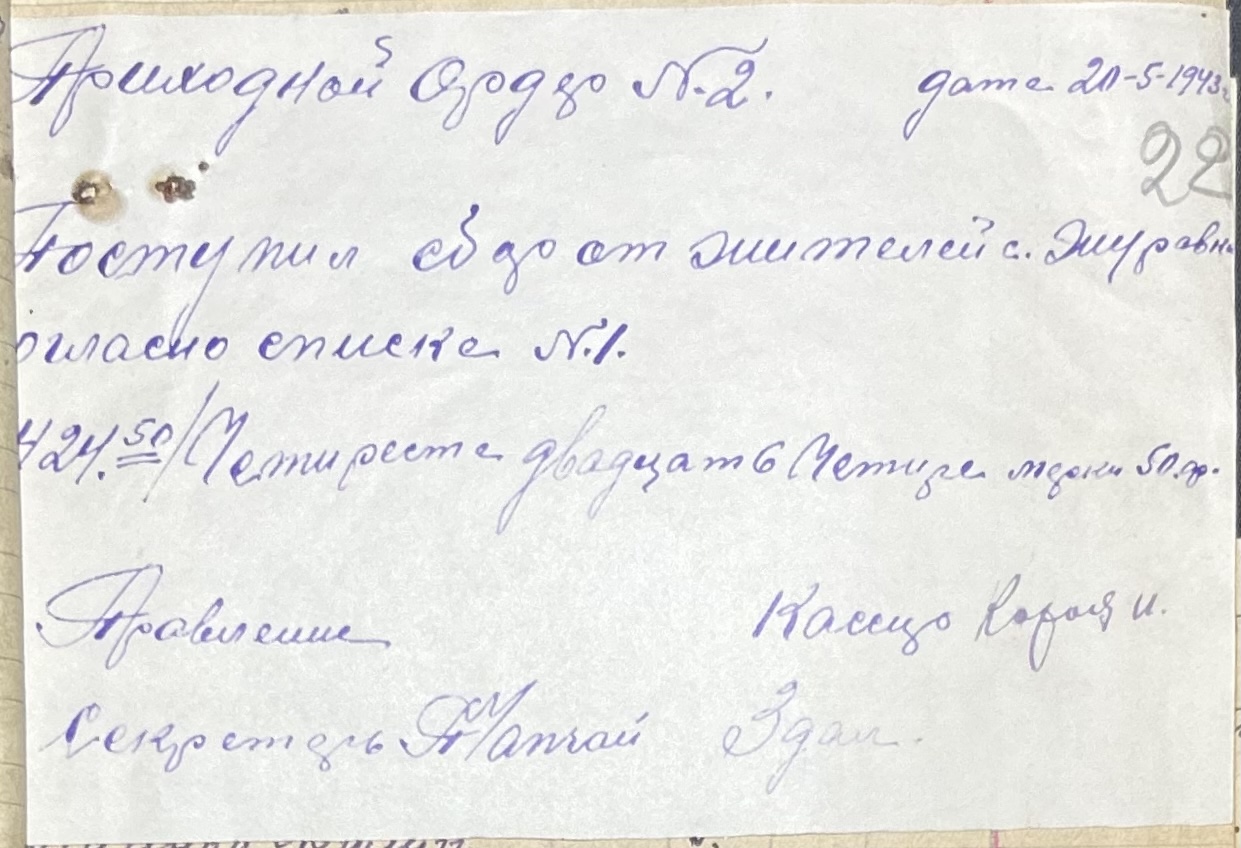 Приходной Ордер N.2. дата 20-5-1943г
22
Поступил сбор от жителей с. Журавн
огласно списка N.1.
424.50/Четиреста двадцать Четире марки 50.ф.
Правление Кассир и.
Секретарь Здал.